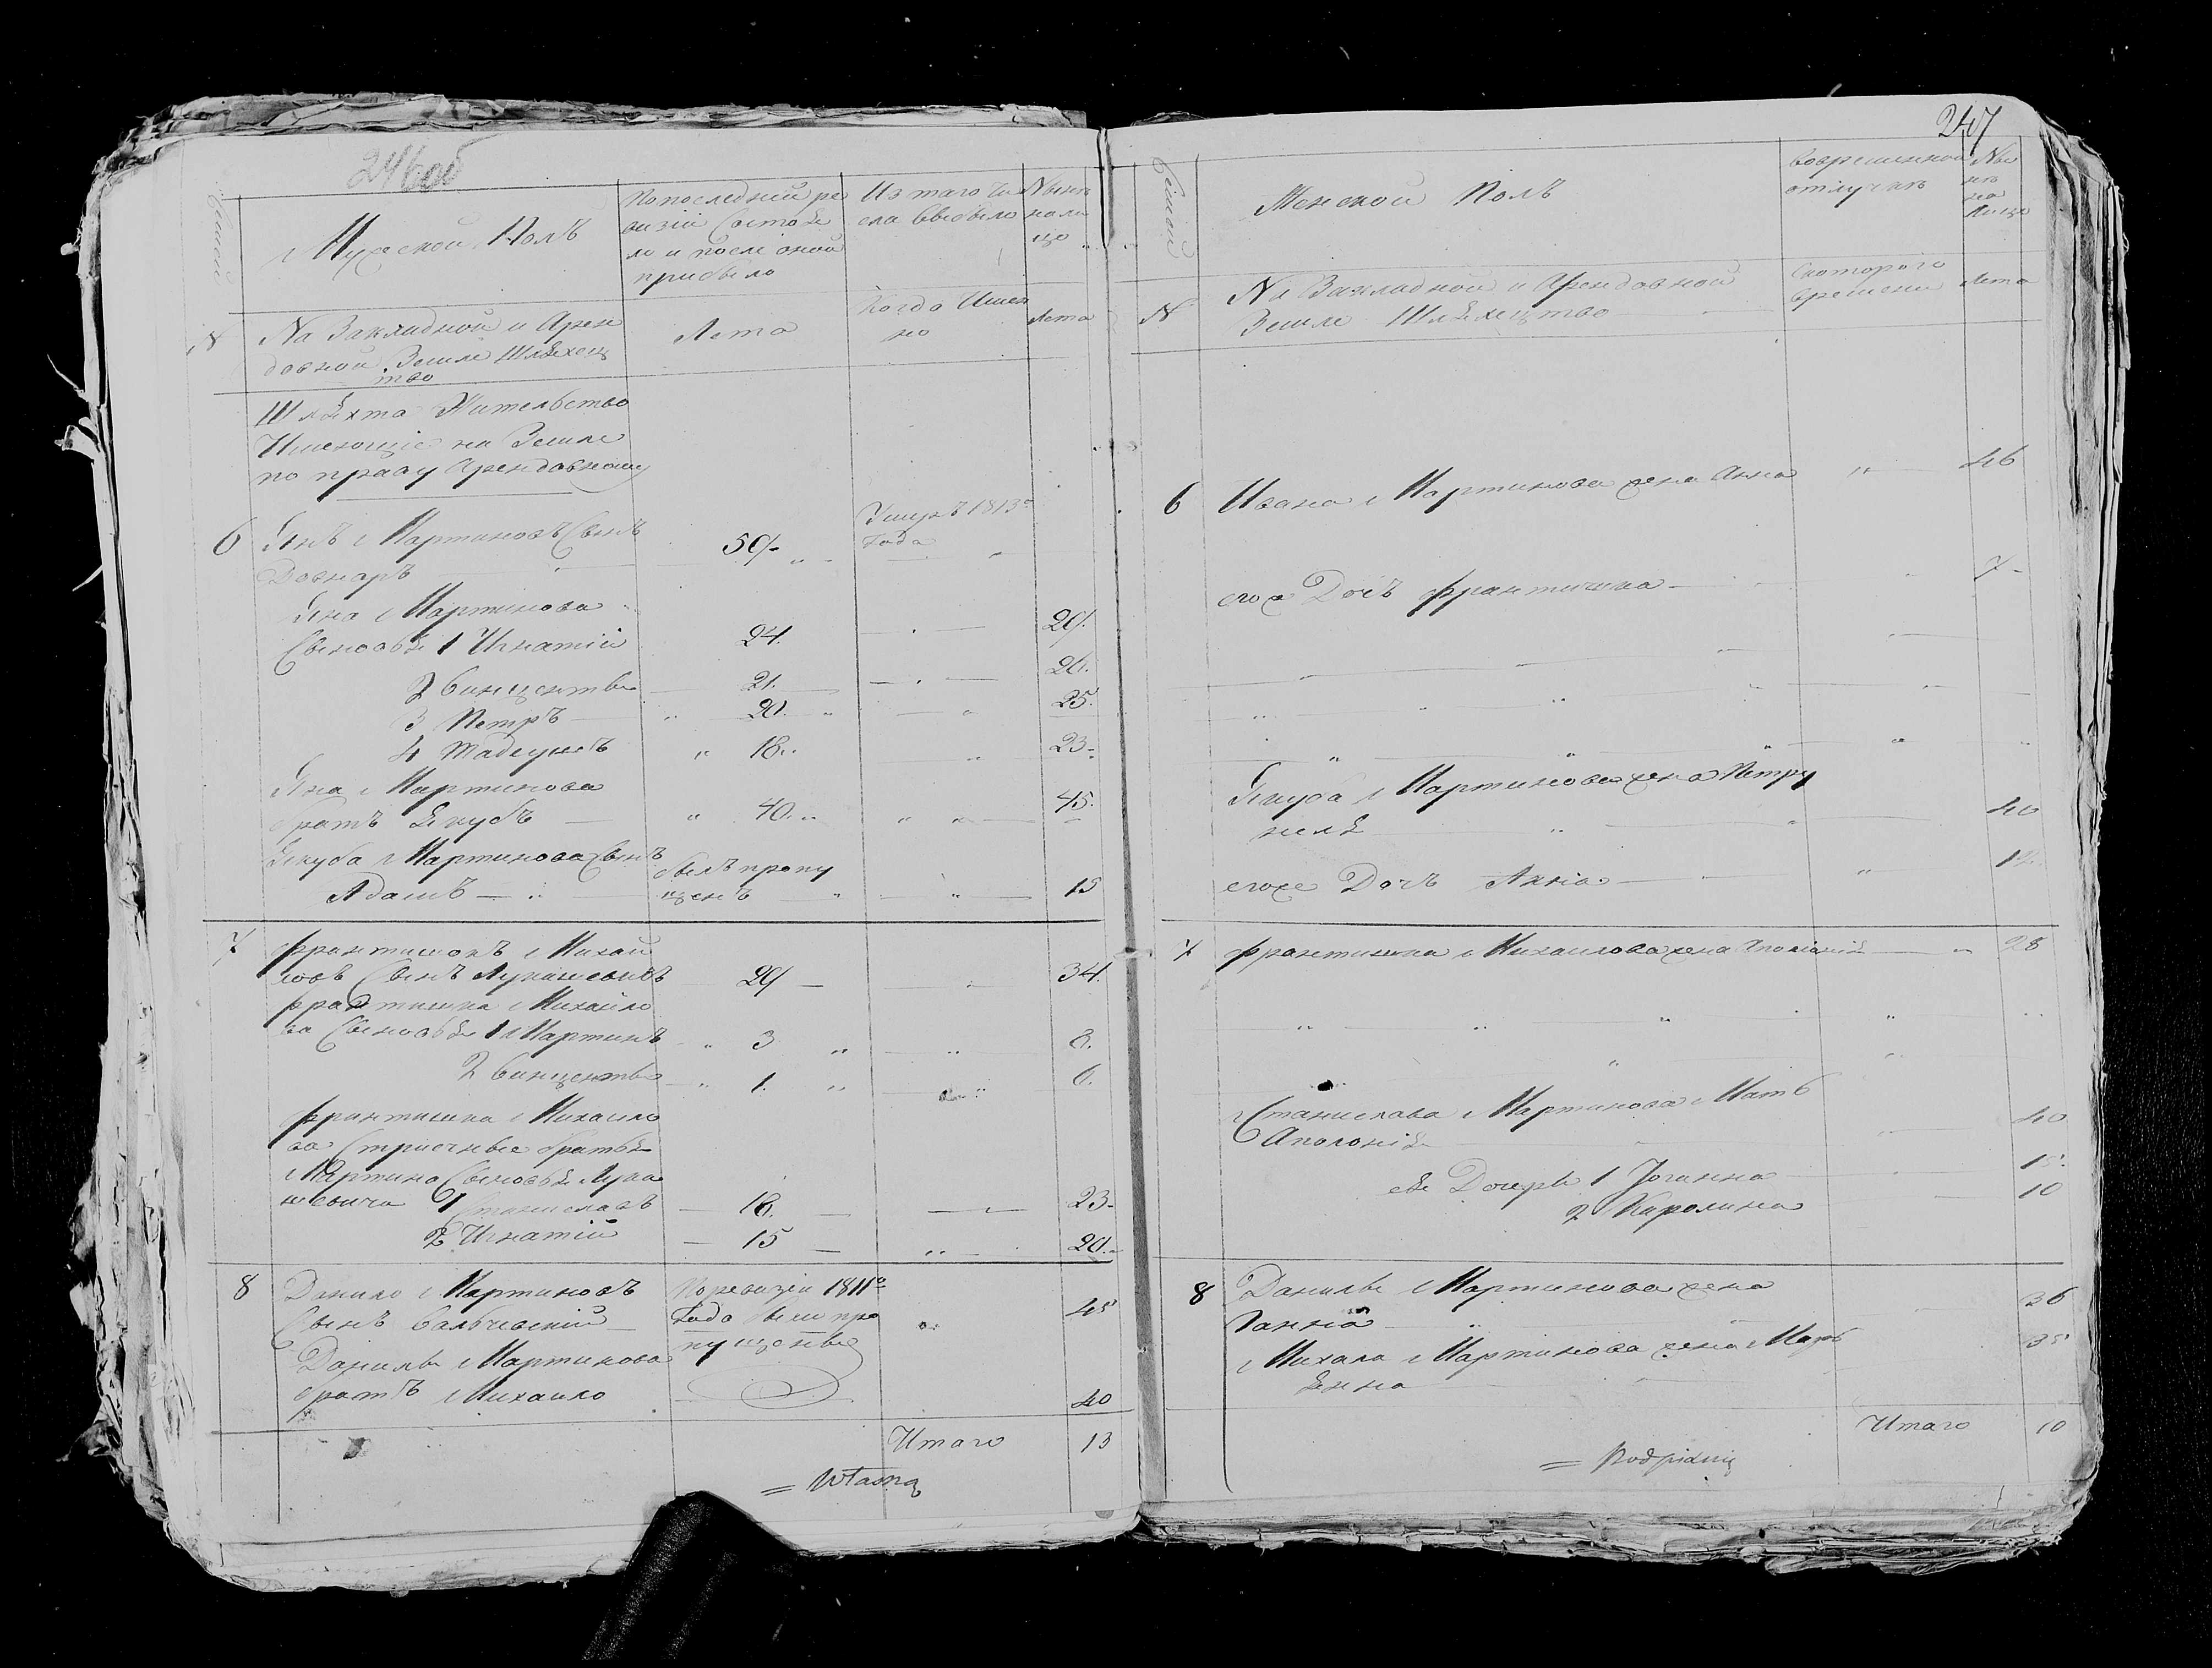 246 об
Семей
Мужеской Полъ
По последний ре
визіи Состоя
ло и после оной
прибыло
Из таго Чи
сла Выбыло
Ныне
на ли
цо
N
На Закладной и Арен
довной Земле Шляхец
тво
Лета
Когда Имен
но
Лета
Шляхта Жительство
Имеющіе на Земле
по праву Арендовному
6
Янъ Мартиновъ Сынъ
Довнаръ
50
Умеръ 1813го
Года
Яна Мартинова
Сыновья 1 Игнатій
24.
29.
2 Винценты
21.
26.
3 Петръ
20.
25.
4 Тадеушъ
18.
23
Яна Мартинова
братъ Якубъ
40.
45.
Якуба Мартинова Сынъ
Адамъ
былъ пропу
щенъ
15
7
Франтишокъ Михай
ловъ Сынъ Лукашевичъ
29
34.
Франтишка Михайло
ва Сыновья 1 Мартинъ
3
8.
2 Винценты
1.
6.
Франтишка Михайло
ва Стриечные братья
Мартина Сыновья Лука
шевича 1 Станиславъ
18.
23
2 Игнатій
15
20.
8
Данило Мартиновъ
Сынъ Вальчевскій
По ревизіи 1811го
Года были про
пущены
45
Данилы Мартинова
братъ Михайло
40
Итаго 13
= Własną
247
Семей
Женской Полъ
Во временной
отлучке
Ны
не
на
лицо
N
На Закладной и Арендовной
Земле Шляхецтво
Скоторого
времени
Лета
6 Ивана Мартинова жена Анна 46
его ж Дочъ Франтишка 7
Якуба Мартинова жена Петру
неля 40
егоже Дочъ Анна 12.
7 Франтишка Михайлова жена Аполонія 28
Станислава Мартинова Мать
Аполонія 40
ее Дочеры 1 Іоганна 15.
2 Каролина 10
8 Данилы Мартинова жена
Ганна 36
Михала Мартинова жена Марь
янна 35
Итаго 10
=